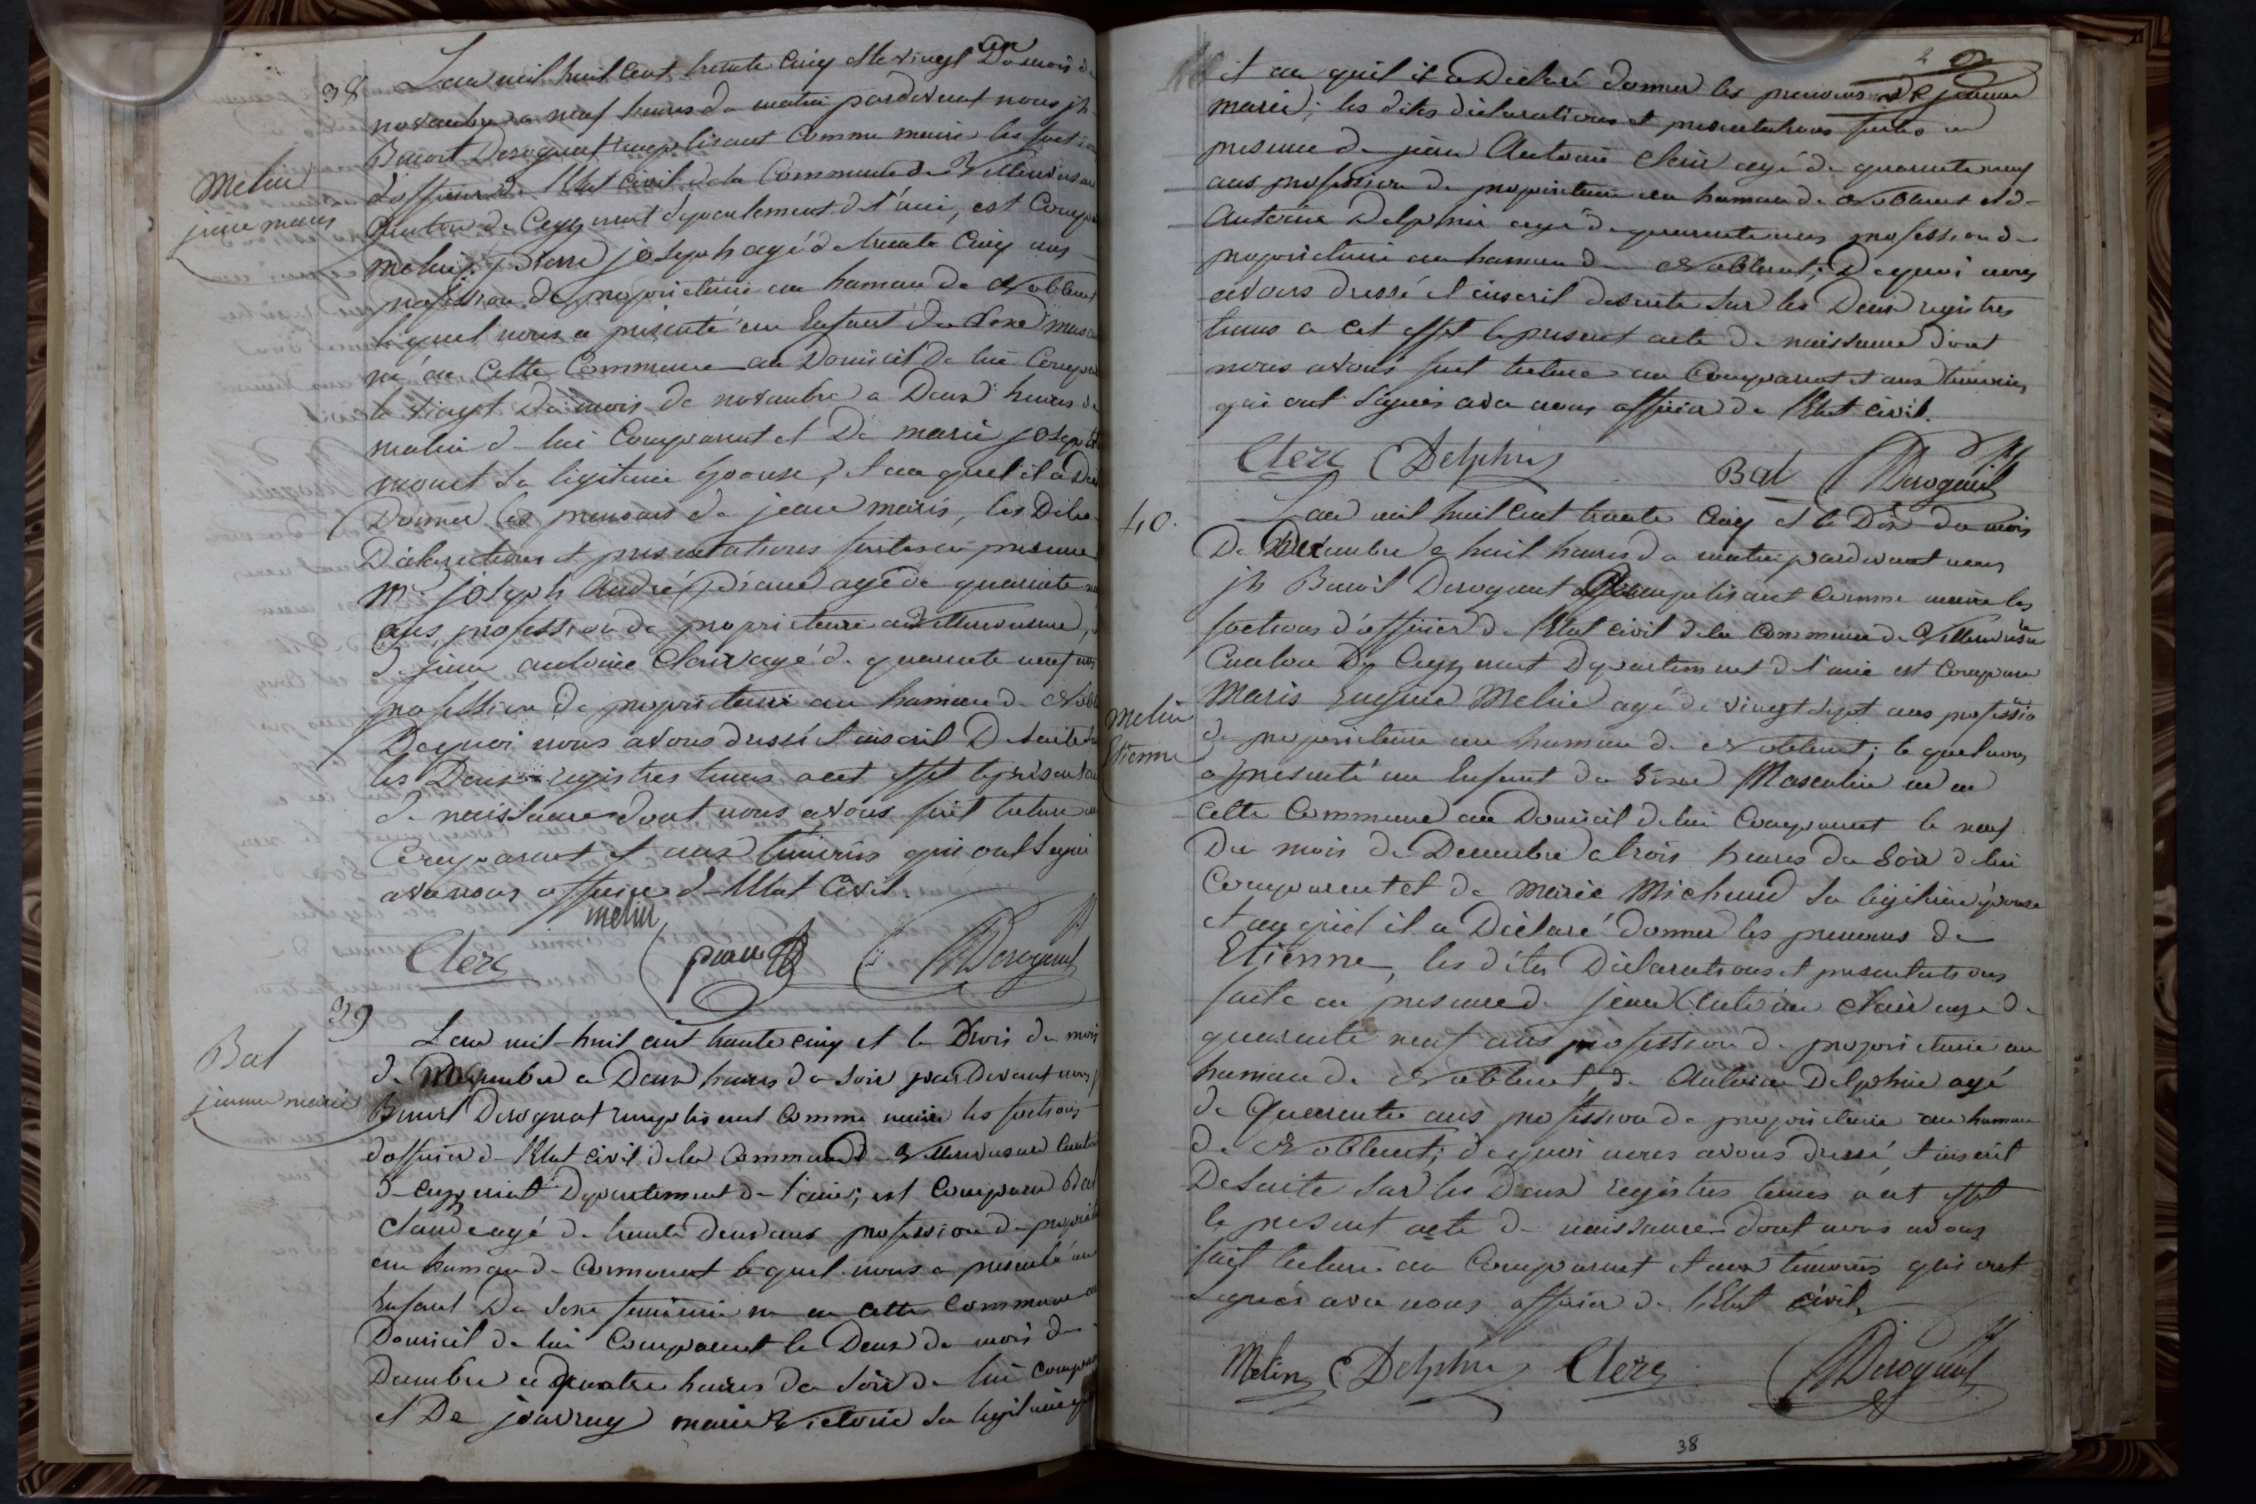 38
L'an mil huit cent trente cinq et le vingt un Du mois de
novembre a neuf heures du matin pardevant nous jh
Benoit Derognat remplissant comme maire les foction
d'officier de l'Etat civil de la Commune de Villereversure
Canton de Ceyzeriat departement de l'ain, est Compa
melin pierre joseph agé de trente Cinq ans
profession de propriétaire au hameau de Noblens
lequel nous a présenté un Enfant du sexe mas
né en Cette Commune au Domicil de lui Compa
le vingt Du mois de novembre a Deux heures du
matin de lui Comparant et De marie josephte
monet Sa légitime épouse, et au quel il a De
Donner les prenoms de jean maris, les Dite
Déclarations et présentations faites en présence
Mr joseph André agé de quarante
ans, profession de propriétaire a Villereversure,
de jean antoine Clair agé de quarante neuf ans
profession de propriétaire au hameau de Nob
De quoi nous avons dressé et inscrit De suite
les Deux registres tenus a cet effet le présent ac
de naissance dont nous avons fait lecture au
Comparant et aux témoins qui ont Signé
avec nous officier de l'Etat Civil.
melin
Clerc Derognat
melin
jean maris
39
L'an mil huit cent trente cinq et le Trois du mois
de Décembre a Deux heures du soir par Devant nous j
Benoit Derognat remplissant comme maire les foctions
d'officier de l'Etat civil de la Commune de Villereversure Canton
de ceyzeriat Département de l'ain; est Comparu Bal
Claude agé de trente deux ans profession de propriét
au hameau de Cormorant lequel nous a présenté un
Enfant Du Sexe feminin né en cette Commune au
Domicil de lui Comparant le Deux du mois de
Decembre a quatre heures du soir de lui compar
et De marie Victoire Sa légitime ép
Bal
jeanne marie
et au quel il a Déclaré donner les prenoms de jeanne
marie; les dites déclarations et présentations faites en
présence de jean Antoine Clair agé de quarante neuf
ans profession de propriétaire au hameau de Noblens et d-
Antoine Delphin agé de quarante ans profession de
propriétaire au hameau de Noblens; De quoi nous
avons dressé et inscrit de suite sur les Deux registres
tenus a cet effet le présent acte de naissance dont
nous avons fait lecture au Comparant et aux témoins
qui ont Signés avec nous officier de l'Etat civil.
Clerc Delphin Bal Derognat
40.
L'an mil huit cent trente cinq et le Dix du mois
De Décembre a huit heures du matin pardevant nous
jh Benoit Derognat remplissant comme maire les
foctions d'officier de l'Etat civil de la commune de Villereversure
Canton de Ceyzeriat Département de l'ain est comparu
Maris Eugene Melin agé de vingt sept ans profession
de propriétaire au hameau de Noblens; le quel nous
a présenté un Enfant du Sexe Masculin né en
cette Commune au Domicil de lui Comparant le neuf
Du mois de Decembre a trois heures du Soir de lui
Comparant et de Marie Michaud Sa légitime épouse
et au quel il a Déclaré donner les prenoms de
Etienne, les dites Déclarations et présentations
faite en présence de jean Antoine Clair agé de
quarante neuf ans profession de propriétaire au
hameau de Noblens, de Antoine Delphin agé
de Quarante ans profession de propriétaire au hameau
de Noblens; de quoi nous avons dressé et inscrit
De Suite Sur les Deux registres tenus a cet effet
le présent acte de naissance dont nous avons
fait lecture au Comparant et aux témoins qui ont
Signés avec nous officier de l'Etat civil.
Melin Delphin Clerc Derognat
melin
Etienne
38